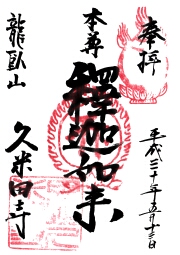 奉拝
本尊
釋迦如来
龍臥山
久米田寺
平成三十年五月十三日